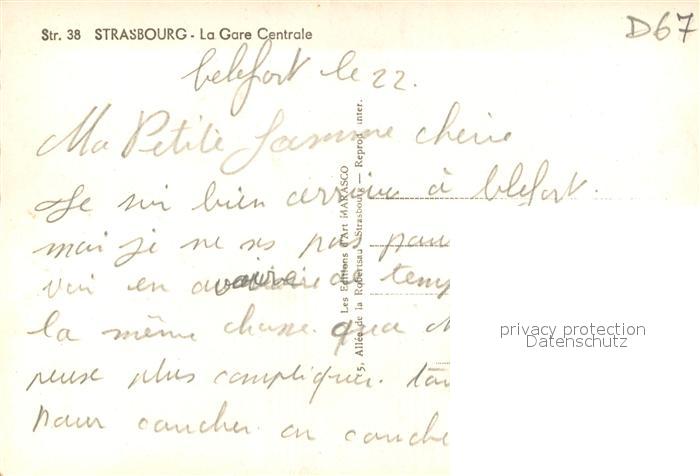 Str. 38 STRASBOURG - La Gare Centrale
D67
belefort le 22.
Ma Petite famme cherie
Je sui bien arrive à blefort.
mai je ne s pas pau
voir en avoire de temp
la même chasse que
peuse plus compliquer. tou
pour coucher on couche
Les Editions d'Art MARASCO
5, Allée de la Robertsau - Strasbourg — Reprod. inter.
privacy protection
Datenschutz